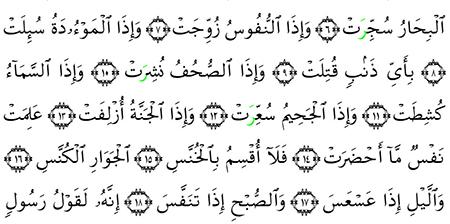 ٱلْبِحَارُ سُجِّرَتْ ﴿٦﴾ وَإِذَا ٱلنُّفُوسُ زُوِّجَتْ ﴿٧﴾ وَإِذَا ٱلْمَوْءُۥدَةُ سُئِلَتْ
﴿٨﴾ بِأَىِّ ذَنۢبٍ قُتِلَتْ ﴿٩﴾ وَإِذَا ٱلصُّحُفُ نُشِرَتْ ﴿١٠﴾ وَإِذَا ٱلسَّمَآءُ
كُشِطَتْ ﴿١١﴾ وَإِذَا ٱلْجَحِيمُ سُعِّرَتْ ﴿١٢﴾ وَإِذَا ٱلْجَنَّةُ أُزْلِفَتْ ﴿١٣﴾ عَلِمَتْ
نَفْسٌ مَّآ أَحْضَرَتْ ﴿١٤﴾ فَلَآ أُقْسِمُ بِٱلْخُنَّسِ ﴿١٥﴾ ٱلْجَوَارِ ٱلْكُنَّسِ ﴿١٦﴾
وَٱلَّيْلِ إِذَا عَسْعَسَ ﴿١٧﴾ وَٱلصُّبْحِ إِذَا تَنَفَّسَ ﴿١٨﴾ إِنَّهُۥ لَقَوْلُ رَسُولٍ